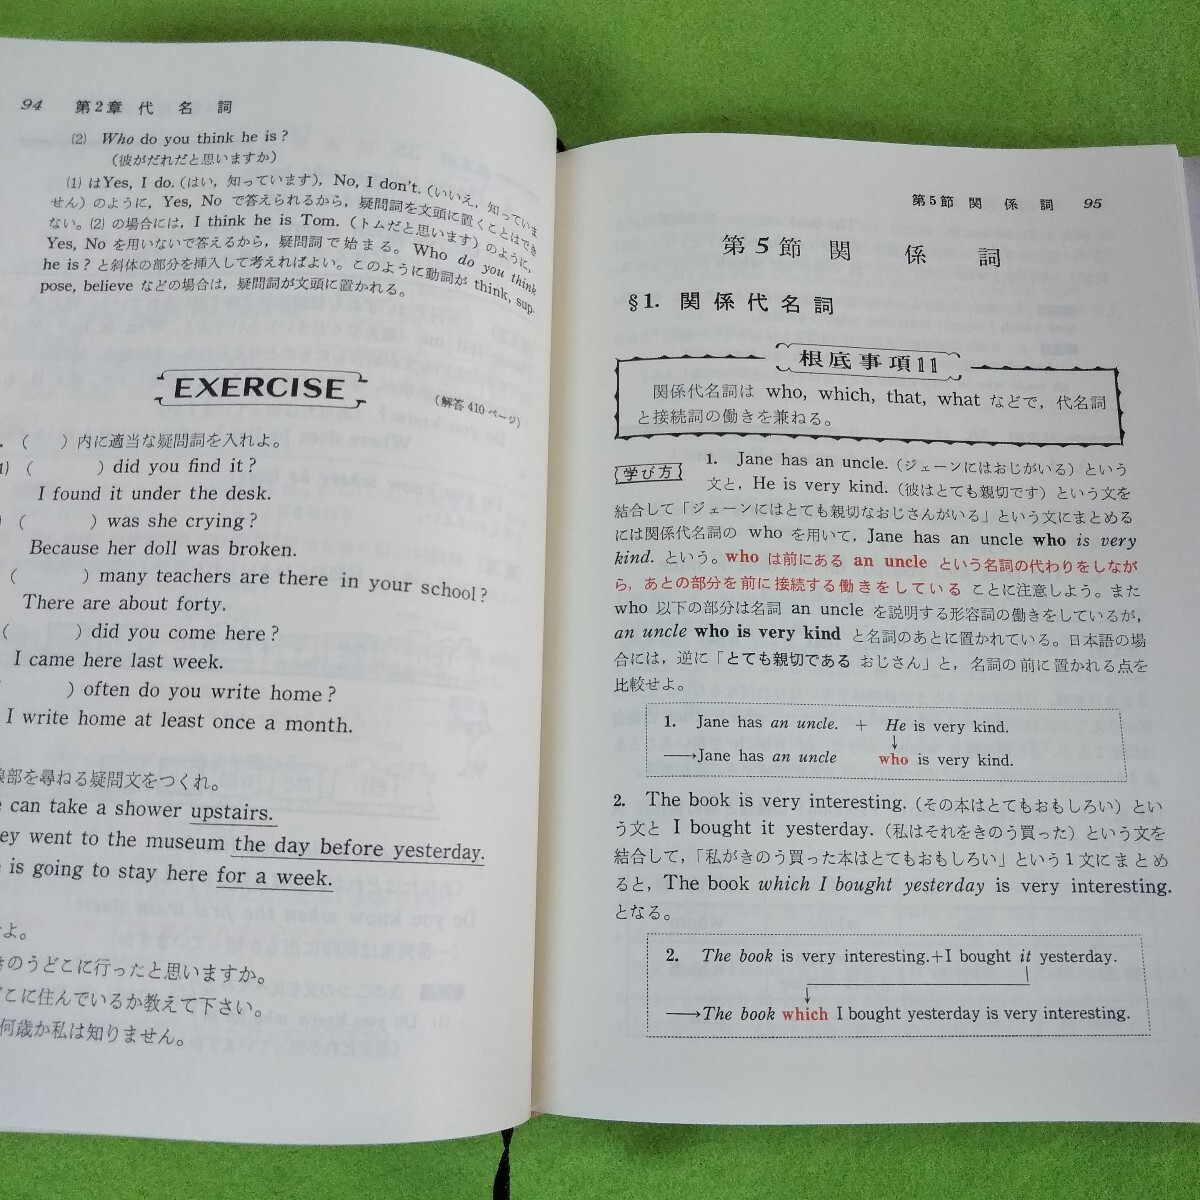 94 第2章 代名詞
(2) Who do you think he is?
(彼がだれだと思いますか)
(1) はYes, I do. (はい, 知っています), No, I don't. (いいえ, 知っていま
せん) のように, Yes, No で答えられるから, 疑問詞を文頭に置くことはでき
ない。(2) の場合には, I think he is Tom. (トムだと思います) のように,
Yes, No を用いないで答えるから, 疑問詞で始まる。Who do you think
he is? と斜体の部分を挿入して考えればよい。このように動詞が think, sup-
pose, believe などの場合は, 疑問詞が文頭に置かれる。
EXERCISE
(解答410ページ)
( )内に適当な疑問詞を入れよ。
( ) did you find it?
I found it under the desk.
( ) was she crying?
Because her doll was broken.
( ) many teachers are there in your school?
There are about forty.
( ) did you come here?
I came here last week.
) often do you write home?
I write home at least once a month.
部を尋ねる疑問文をつくれ。
can take a shower upstairs.
ey went to the museum the day before yesterday.
is going to stay here for a week.
よ。
きのうどこに行ったと思いますか。
こに住んでいるか教えて下さい。
何歳か私は知りません。
第5節 関係詞 95
第5節 関係詞
§1. 関係代名詞
根底事項11
関係代名詞は who, which, that, what などで, 代名詞
と接続詞の働きを兼ねる。
学び方 1. Jane has an uncle. (ジェーンにはおじがいる) という
文と, He is very kind. (彼はとても親切です) という文を
結合して「ジェーンにはとても親切なおじさんがいる」という文にまとめる
には関係代名詞の who を用いて, Jane has an uncle who is very
kind. という。who は前にある an uncle という名詞の代わりをしなが
ら, あとの部分を前に接続する働きをしている ことに注意しよう。また
who 以下の部分は名詞 an uncle を説明する形容詞の働きをしているが,
an uncle who is very kind と名詞のあとに置かれている。日本語の場
合には, 逆に「とても親切である おじさん」と, 名詞の前に置かれる点を
比較せよ。
1. Jane has an uncle. + He is very kind.
↓
→Jane has an uncle who is very kind.
2. The book is very interesting. (その本はとてもおもしろい) とい
う文と I bought it yesterday. (私はそれをきのう買った) という文を
結合して, 「私がきのう買った本はとてもおもしろい」という1文にまとめ
ると, The book which I bought yesterday is very interesting.
となる。
2. The book is very interesting.+I bought it yesterday.
→The book which I bought yesterday is very interesting.